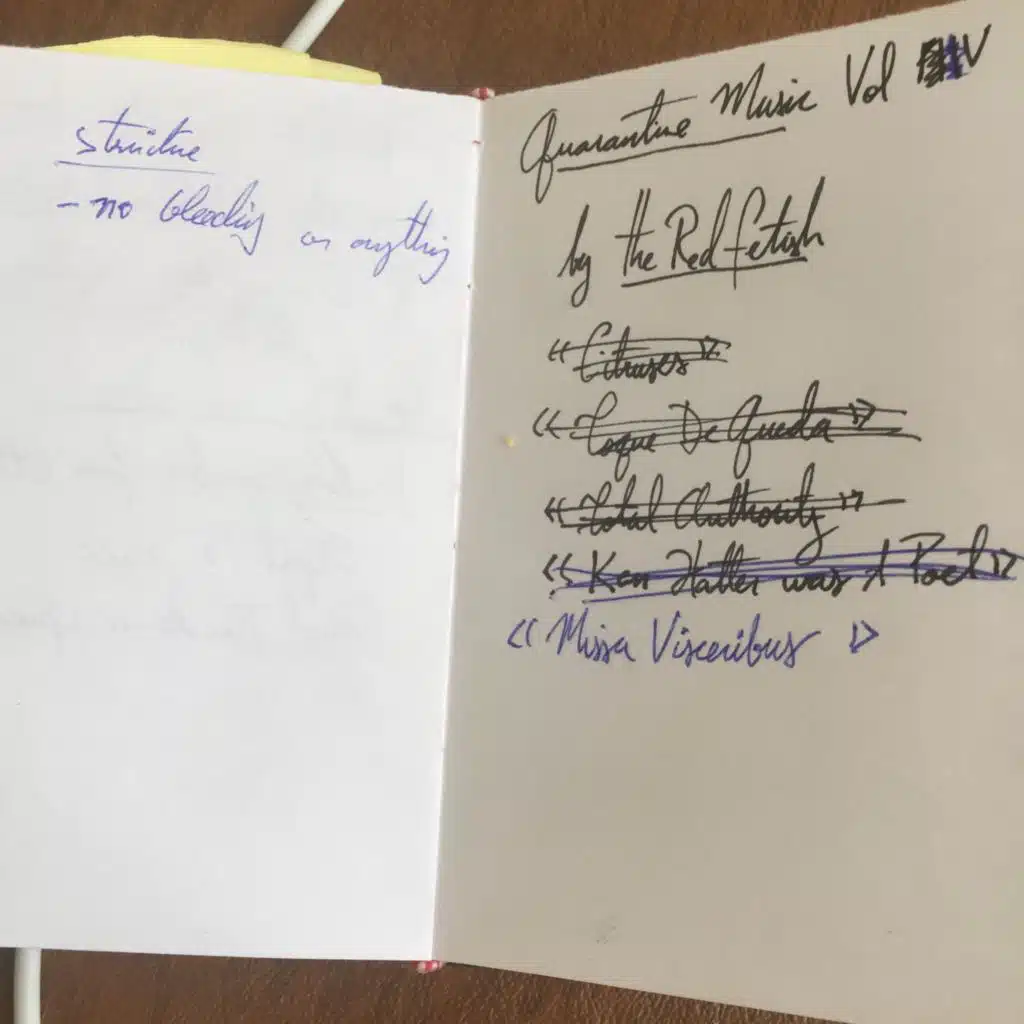 structure
- no bleeding or anything
Quarantine Music Vol V
by the Red Fetish
<< Citruses >>
<< Toque De Queda >>
<< Total Authority >>
<< Ken Hatter was A Poet >>
<< Missa Visceribus >>